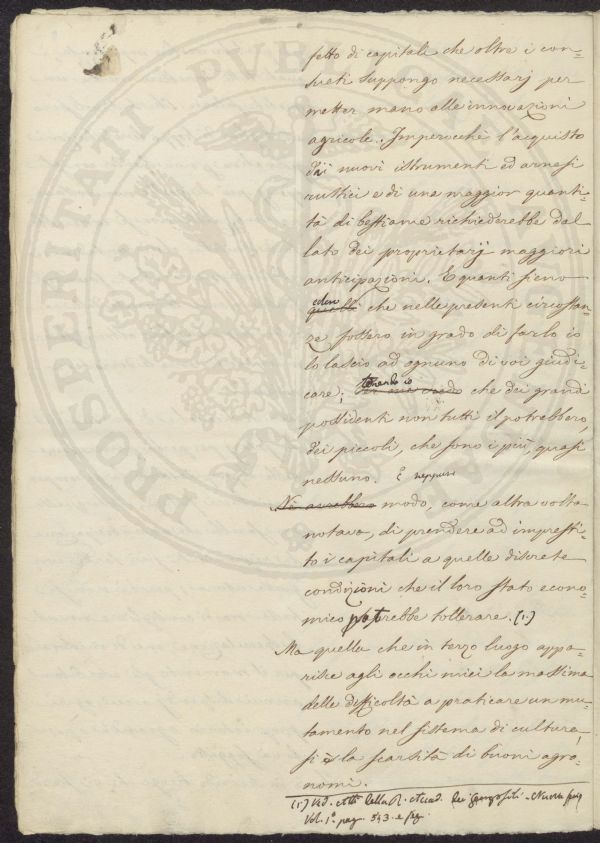 fetto di capitali che oltre i con=
sueti suppongo necessarj per
metter mano alle innovazioni
agricole. Imperocchè l'acquisto
di nuovi istrumenti ed arnesi
rustici e di una maggior quanti=
tà di bestiame richiederebbe dal
lato dei proprietarj maggiori
anticipazioni. E quanti sieno
coloro
quelli che nelle presenti circostan=
ze fossero in grado di farlo io
lo lascio ad ognuno di voi giudi=
care;
tenendo io
che dei grandi
possidenti non tutti il potrebbero,
dei piccoli, che sono i più, quasi
nessuno.
E neppure
Nè avrebbero modo, come altra volta
notava, di prendere ad impresti=
to i capitali a quelle discrete
condizioni che il loro stato econo=
mico potrebbe tollerare. (1.)
Ma quella che in terzo luogo appa=
risce agli occhi miei la massima
delle difficoltà a praticare un mu=
tamento nel sistema di cultura,
si è la scarsità di buoni agro=
nomi.
(1.) Ved. Atti della R. Accad. dei Georgofili - Nuova
Vol. 1.° pag. 543. e seg.
PROSPERITATI PVBL